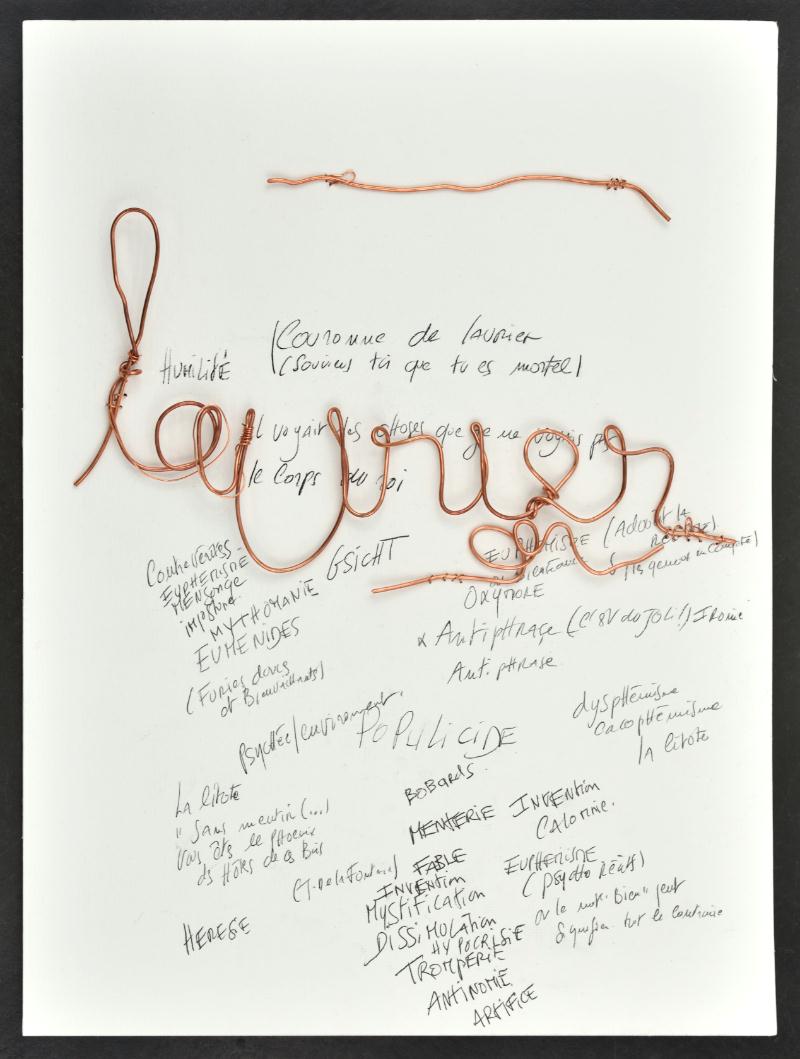 Couronne de laurier
(Souviens toi que tu es mortel)
HUMILITÉ
laurier
il voyait des choses que je ne voyais pas
le corps du roi
GSICHT
Contrevérités
EUPHEMISME
MENSONGE
imposture
MYTHOMANIE
EUMENIDES
(Furies douces
et Bienveillantes)
EUPHEMISME (Adoucit la
OXYMORE
Antiphrase (C'est du JOLI!) IRonie
Antiphrase
dysphémisme
cacophémisme
la litote
environnement
POPULICIDE
La litote
"Sans mentir (...)
Vous êtes le Phoenix
des Hôtes de ces Bois
HERESE
BOBARDS
MENTERIE
FABLE
INVENTION
MYSTIFICATION
DISSIMULATION
HYPOCRISIE
TROMPERIE
ANTINOMIE
ARTIFICE
INVENTION
CALOMNIE.
EUPHEMISME
ou le mot "Bien" peut
signifier tout le contraire